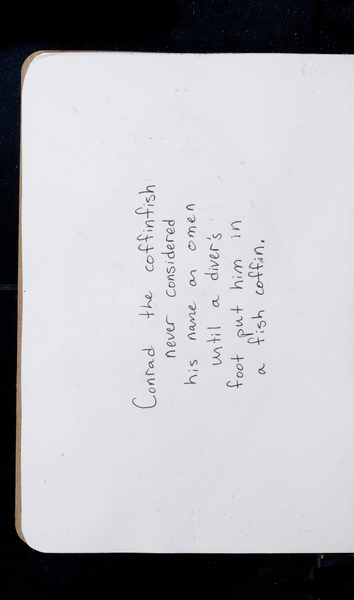 Conrad the coffinfish
never considered
his name an omen
until a diver's
foot put him in
a fish coffin.